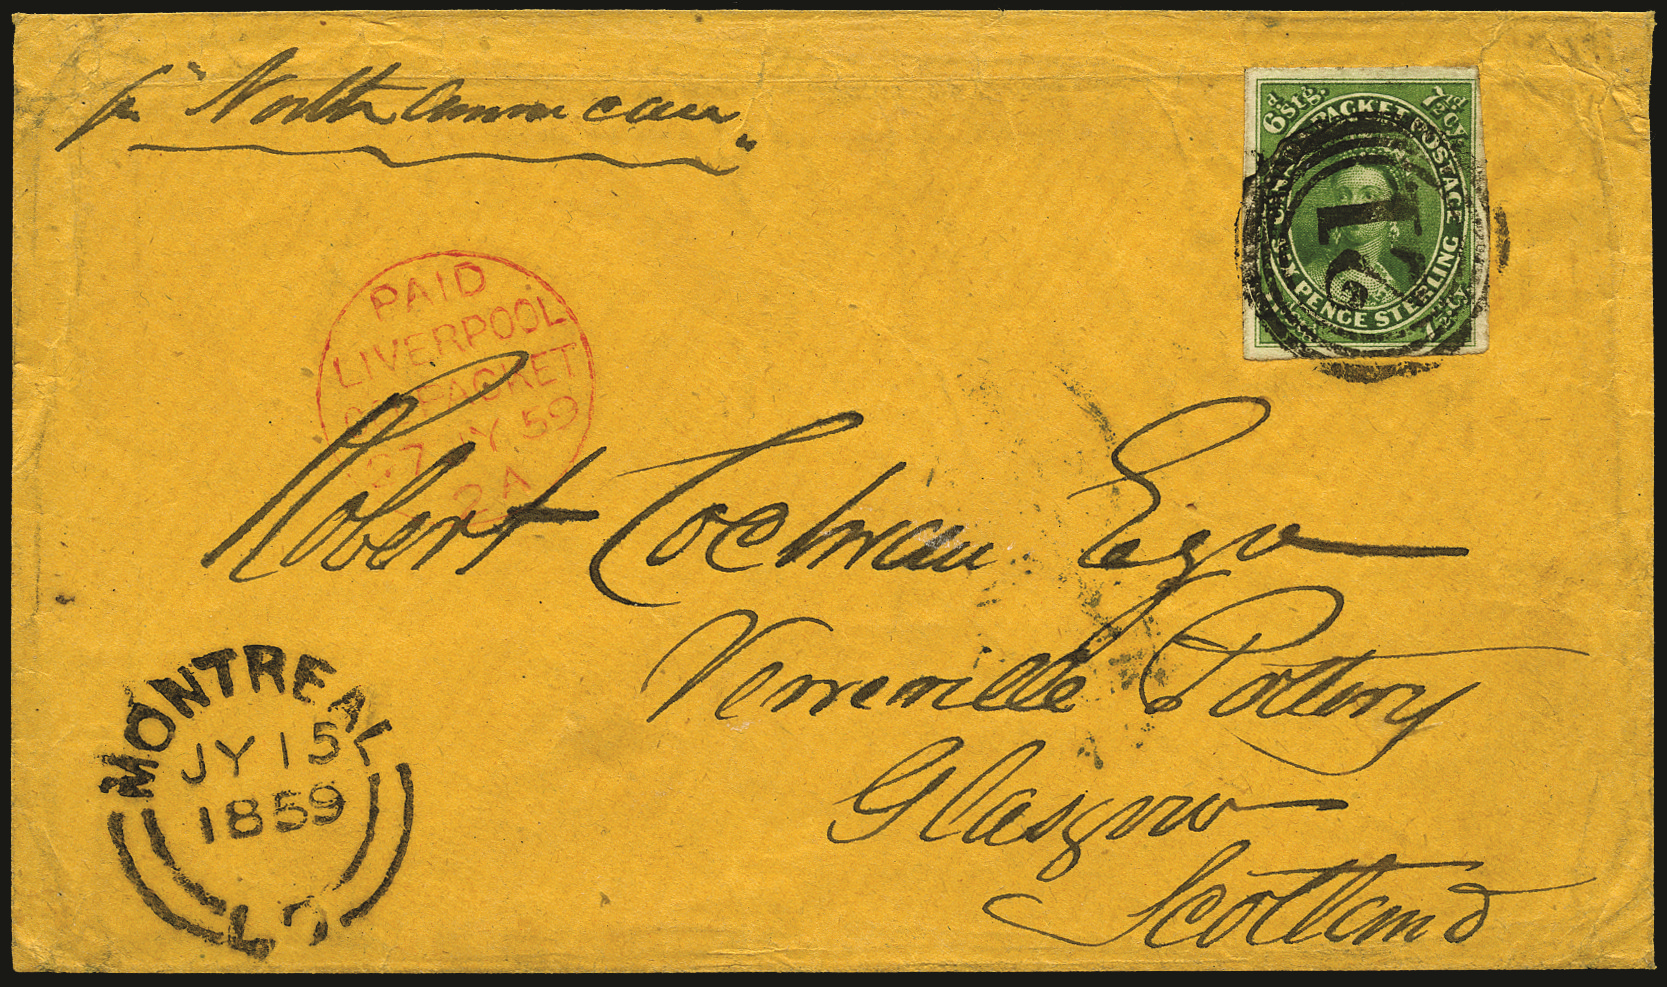 pr "North American"
6d Stg. 7½d Cy.
CANADA PACKET POSTAGE
SIX PENCE STERLING
7½ Cy.
21
PAID
LIVERPOOL
PACKET
27 JY 59
2A
Robert Cochran Esqr
Verreville Pottery
Glasgow
Scotland
MONTREAL
JY 15
1859